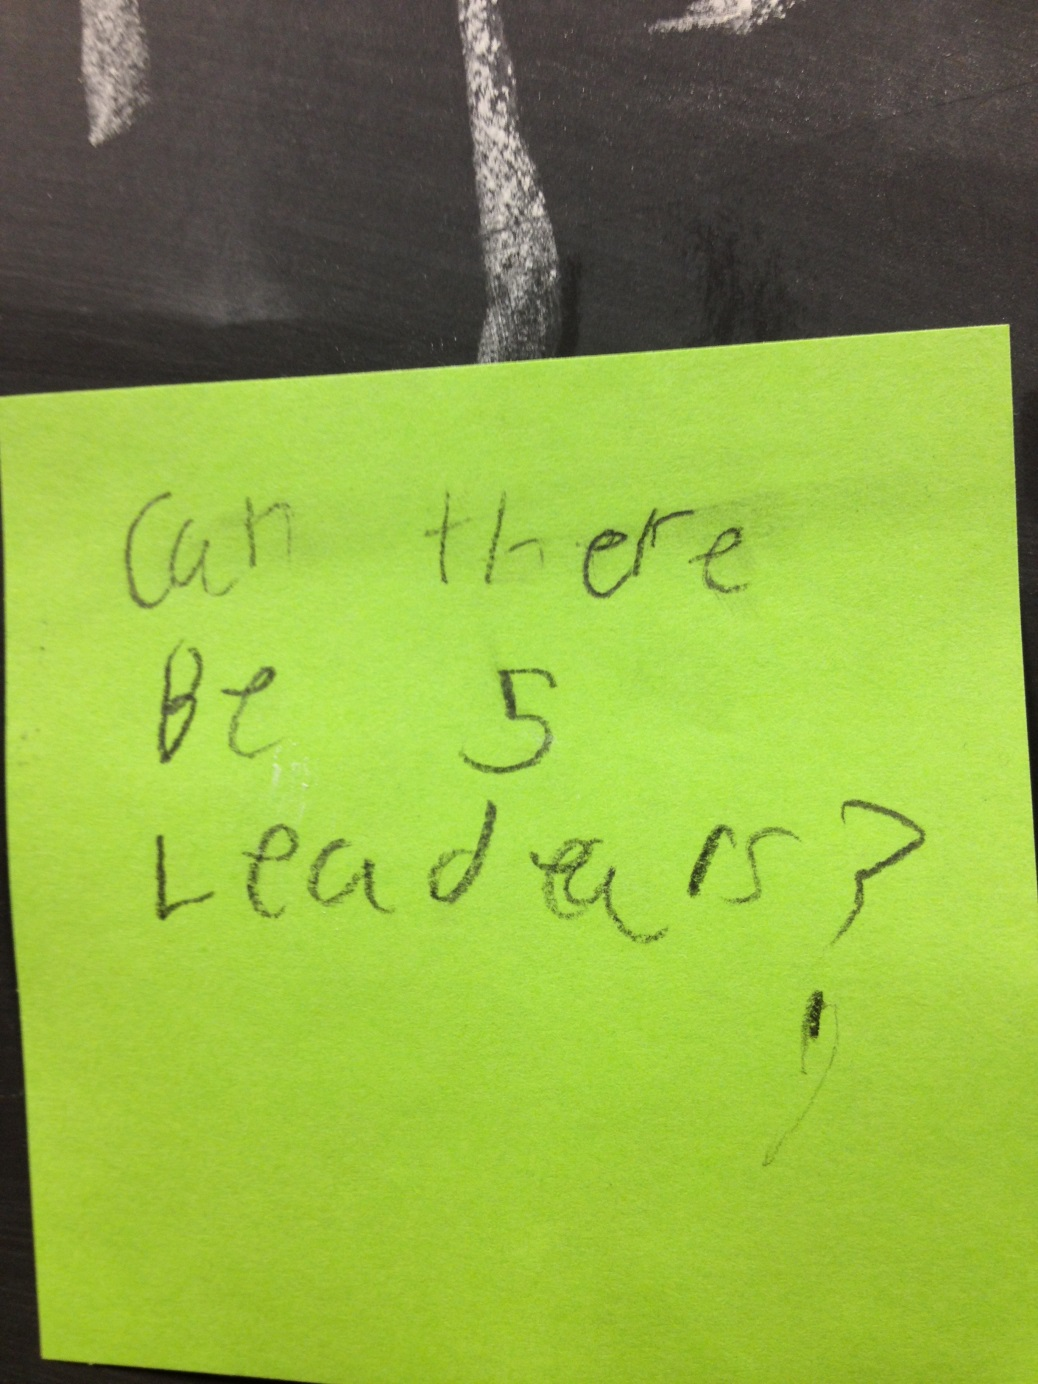 Can there
Be 5
Leaders?